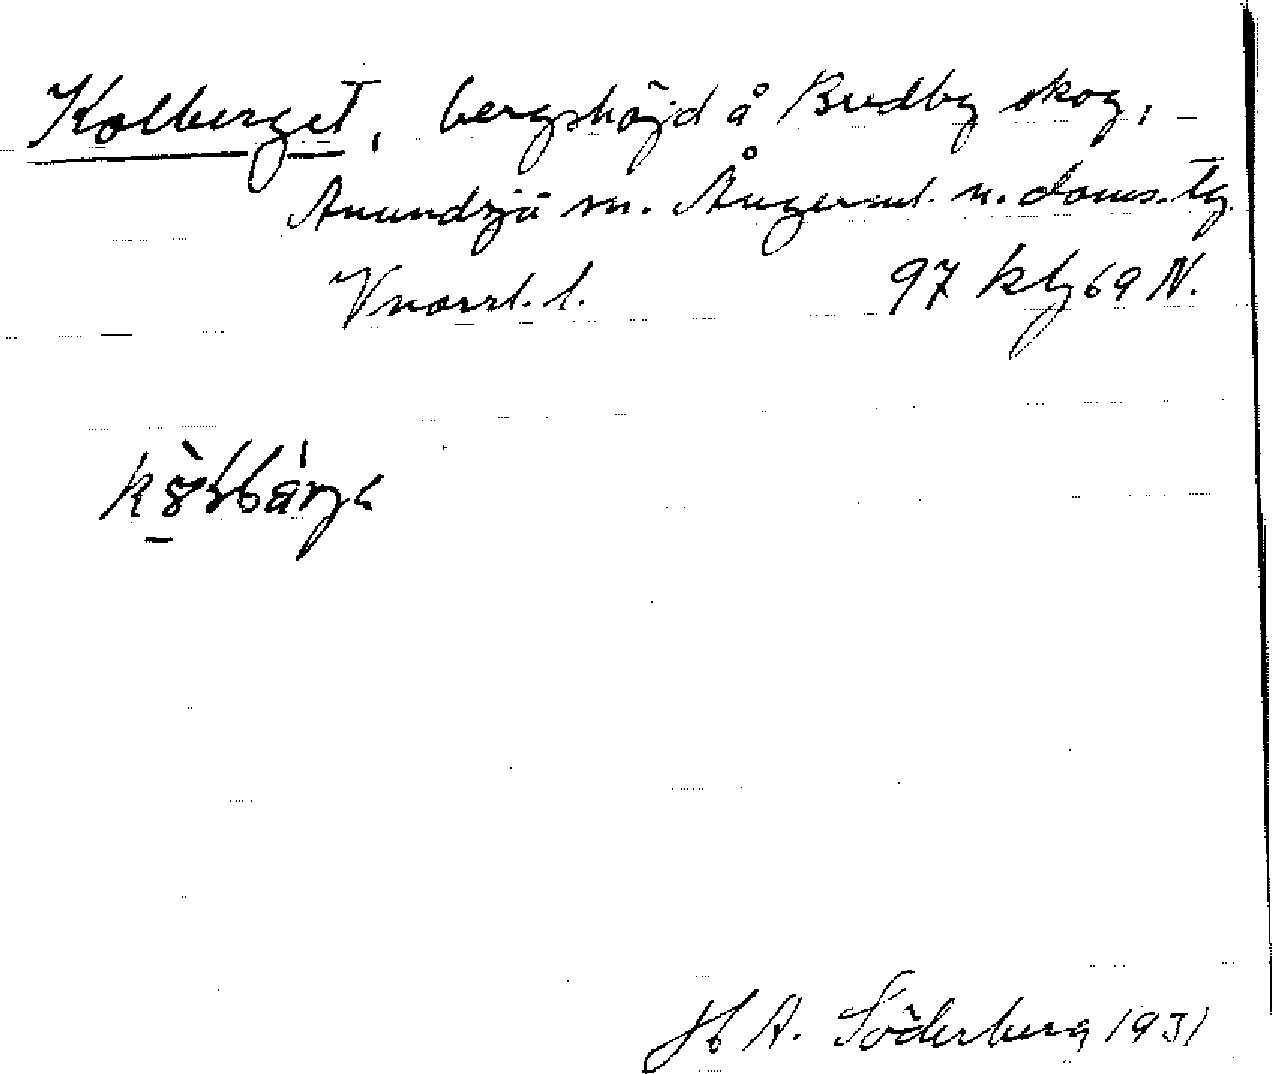 Kolberget, bergshöjd å Bredby skog,
Anundsjö sn. Ångerml. n. doms. tg
Vnorrl. l. 97 kbl 69 N.
H A. Söderberg 1931